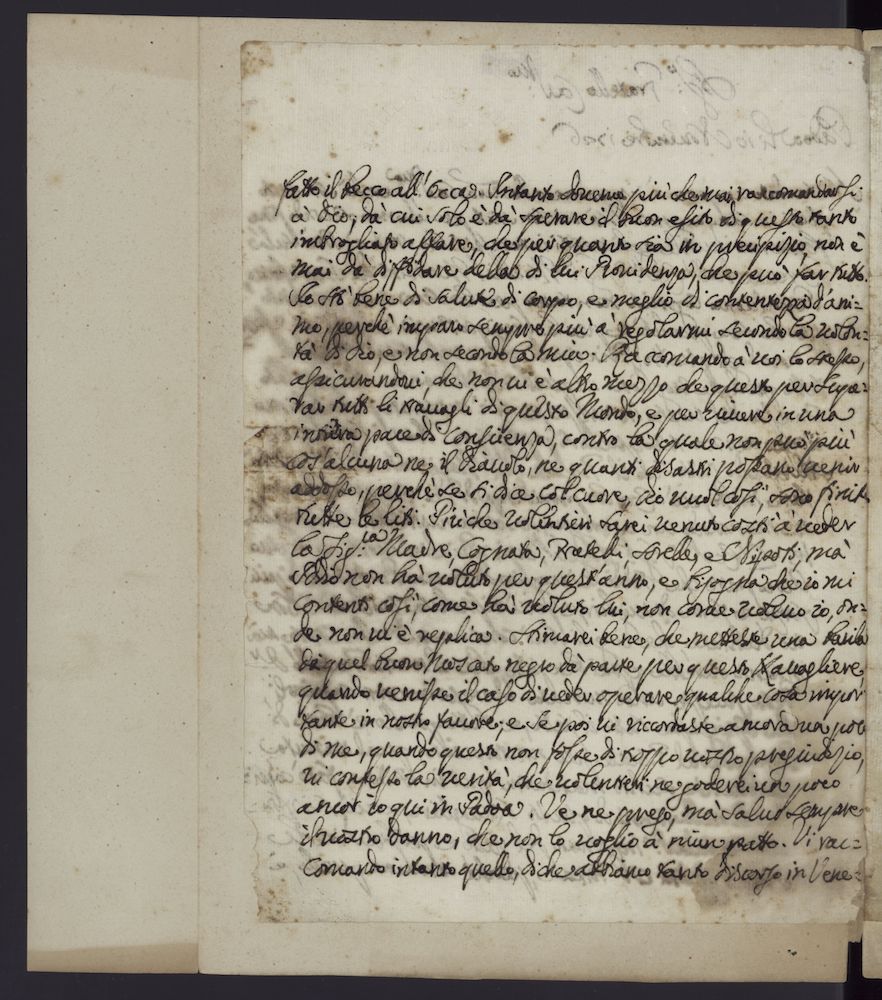 fatto il becco all'Occa. Intanto dovemo più che mai raccomandarsi
à Dio, dà cui solo è dà sperare il buon esito di questo tanto
imbrogliato affare, che per quanto sia in precipizio, non è
mai dà diffidare della di lui Providenza, che può far tutto.
Io stò bene di salute di corpo, e meglio di contentezza d'ani=
mo, perchè imparo sempre più à regolarmi secondo la volon=
tà di Dio, e non secondo la mia. Raccomando à voi lo stesso,
assicurandovi, che non vi è altro mezzo che questo per supe=
rar tutti li travagli di questo Mondo, e per vivere in una
intiera pace di conscienza, contro la quale non può più
cos'alcuna ne il Diavolo, ne quanti disastri possano venir
addosso, perchè se si dice col cuore, Dio vuol così, sono finite
tutte le liti. Più che volentieri sarei venuto costì à veder
la Sig.ra Madre, Cognata, Fratelli, Sorelle, e Nipoti, mà
Iddio non hà voluto per quest'anno, e bisogna che io mi
contenti così, come hà voluto lui, non come volevo io, on=
de non vi è replica. Stimarei bene, che metteste una
dà quel buon Moscato negro dà parte per questo Kavagliere
quando venisse il caso di veder operare qualche cosa impor
tante in nostro favore, e se poi vi ricordaste ancora un poco
di me, quando questo non fosse di troppo vostro pregiudizio,
vi confesso la verità, che volentieri ne goderei un poco
ancor io qui in Padoa. Ve ne prego, mà salvo sempre
il vostro danno, che non lo voglio à niun patto. Vi rac=
comando intanto quello, di che abbiamo tanto discorso in Vene=